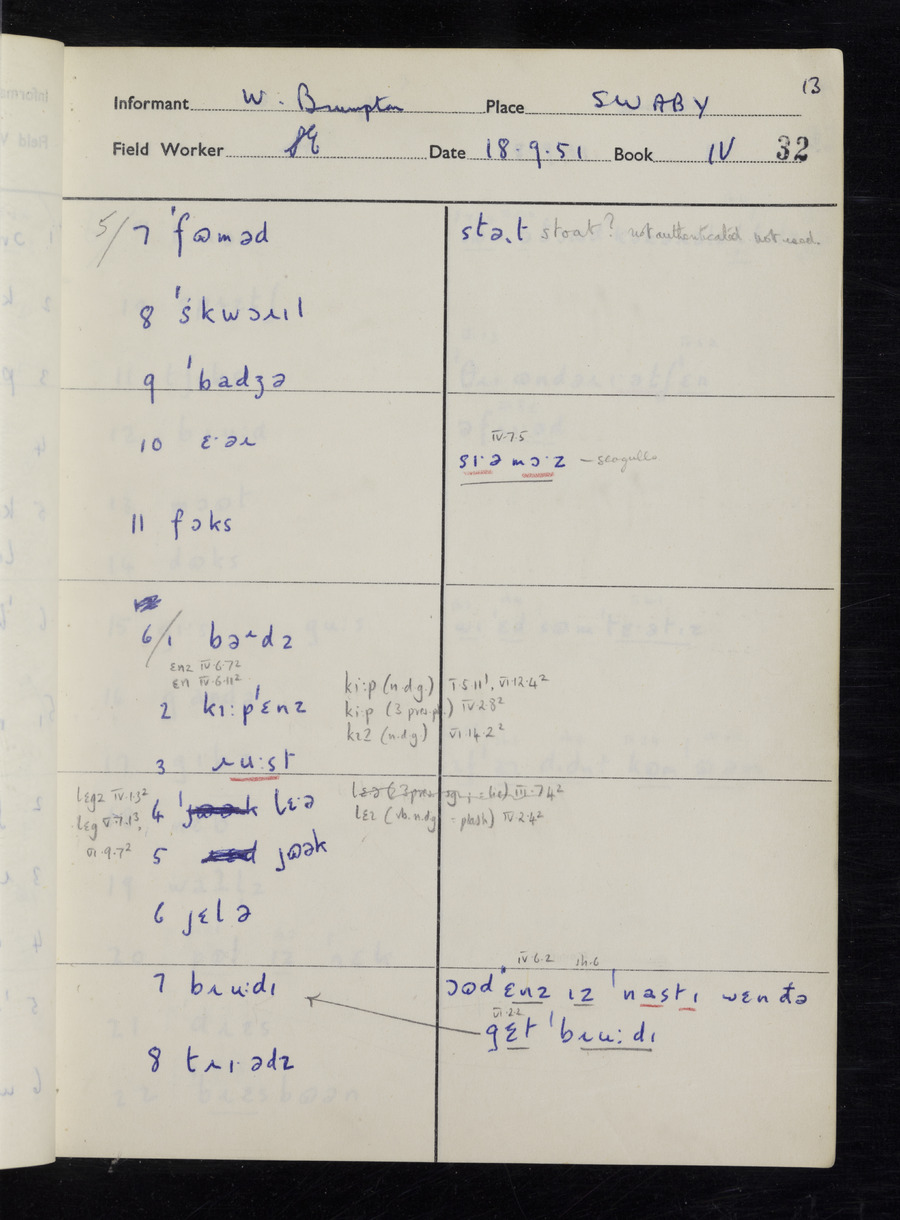 13
Informant W. Brumpton Place SWABY
Field Worker Date 18.9.51 Book IV 32
5/7 ˈfɷməd
stə.t stoat? not authenticated not used.
8 ˈskwɔɹɪl
9 ˈbadʒə
10 ɛ·əɹ
IV.7.5
sɪ·ə mɔ·z – seagulls
11 fɔks
6/1 bəɹdz
ɛnz IV.6.7²
ɛn IV.6.11²
2 kɪ:pˈɛnz
ki:p (n.d.g.) I.5.11¹, VI.12.4²
ki:p (3 pres. pl.) IV.2.8²
(n.d.g.) VI.14.2²
3 ɹu:st
lɛgz IV.1.3²
lɛg V.7.1³,
VI.9.7²
4 lɛ·ə
IV.7.4²
(vb. n.d.g. = plash) IV.2.4²
5 jɷək
6 jɛlə
7 bɹu:dɪ
IV.6.2
ɔɷdˈɛnz ɪz ˈnastɪ wɛn ðə
VI.2.2
gɛt ˈbɹu:dɪ
8 tɹɪ·ədz